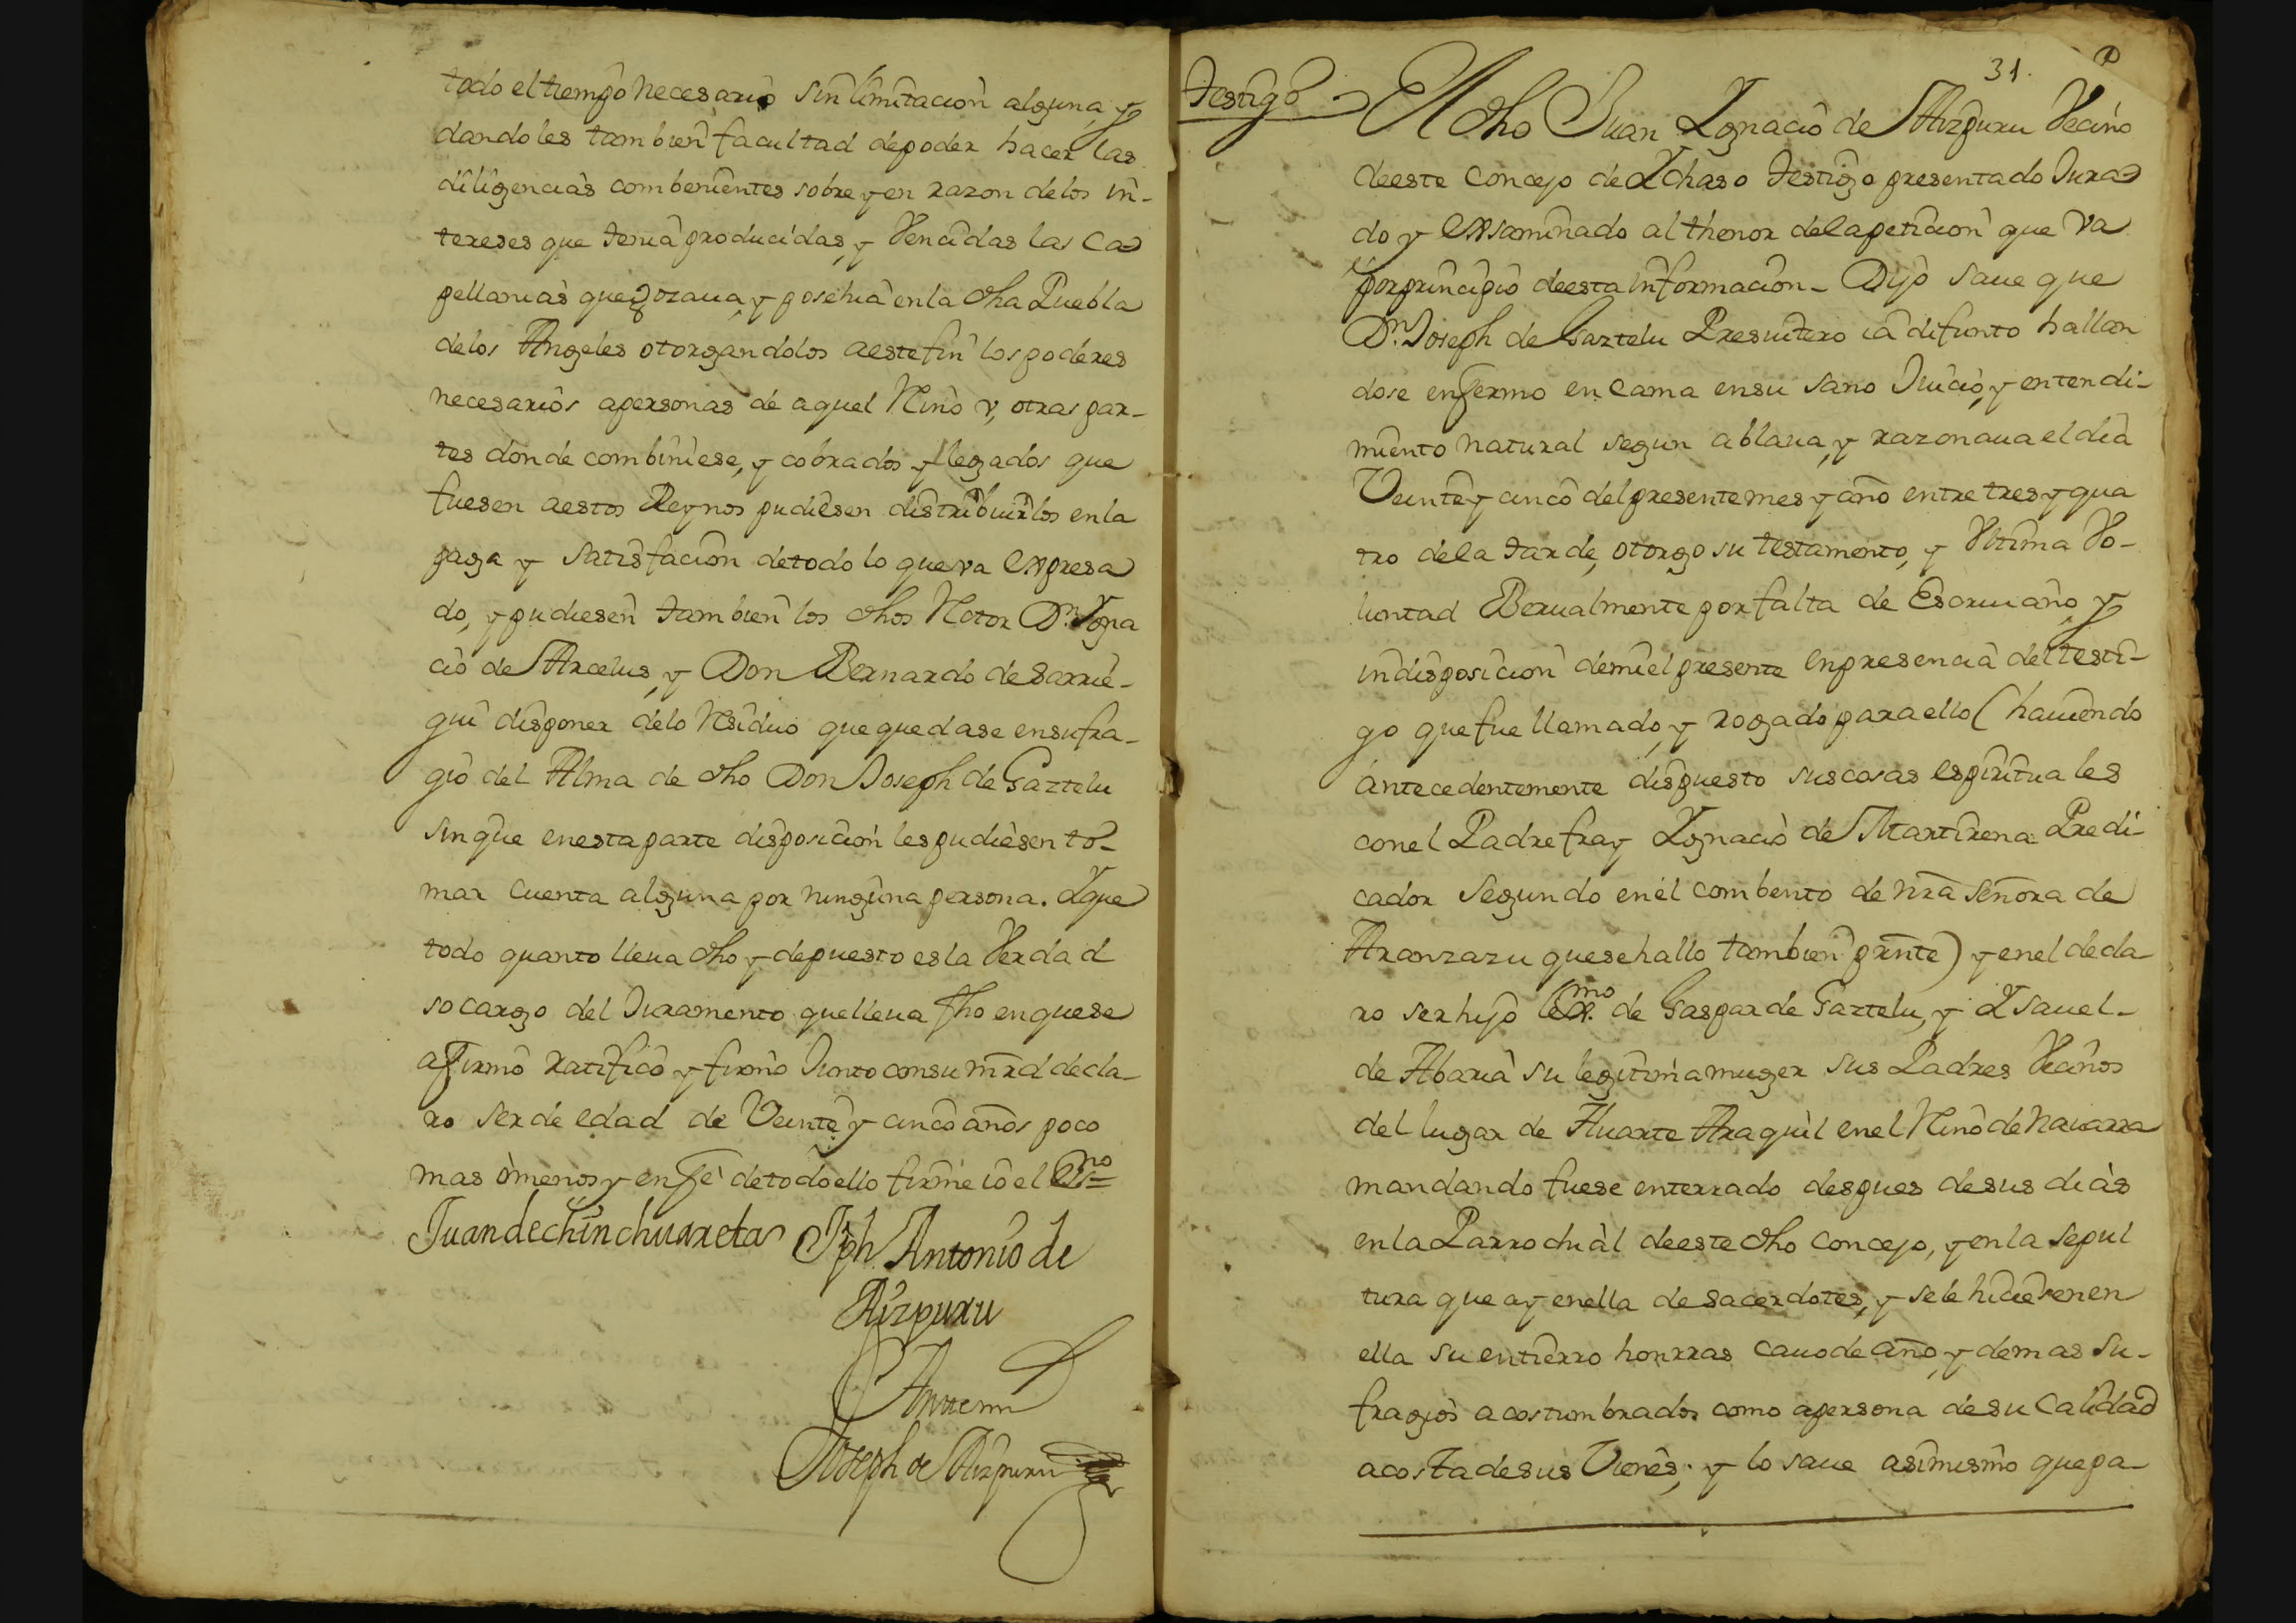 todo el tiempo necesario sin limitacion alguna, y
dandoles tambien facultad de poder hacer las
diligencias combenientes sobre y en razon de los in-
tereses que tenia producidas, y Vencidas las Ca
pellanias que gozaua, y posehia en la dha Puebla
de los Angeles otorgandolos a este fin los poderes
necesarios a personas de aquel Rino y, otras par-
tes donde combiniese, y cobrados y llegados que
fuesen a estos Reynos pudiesen distribuirlos en la
paga y satisfacion de todo lo que va expresa
do, y pudiesen tambien los dhos Retor Dn. Igna
cio de Arcelus, y Don Bernardo de Sarrie-
gui disponer de lo Residuo que quedase en sufra-
gio del Alma de dho Don Joseph de Gaztelu
sin que en esta parte disposicion les pudiesen to-
mar cuenta alguna por ninguna persona. Y que
todo quanto lleua dho y depuesto es la Verdad
so cargo del Juramento que lleua fho en que se
afirmo ratifico y firmo Junto con su mrd decla-
ro ser de edad de Veinte y cinco años poco
mas ò menos y en fè de todo ello firmè io el Essno=
Juan de chinchurreta Jph. Antonio de
Aizpuru
Antemi
Joseph de Aizpuru
31.
Testigo El dho Juan Ygnacio de Aizpuru Vecino
de este Concejo de Ychaso testigo presentado Jura
do y exsaminado al thenor de la peticion que va
por principio de esta informacion - Dijo saue que
Dn. Joseph de Gaztelu Presuitero ia difunto hallan
dose enfermo en cama en su sano Juicio, y entendi-
miento natural segun ablaua, y razonaua el dia
Veinte y cinco del presente mes y año entre tres y qua
tro de la tarde, otorgo su testamento, y Vltima Vo-
luntad Berualmente por falta de Escriuano, y
indisposicion de mi el presente en presencia del testi-
go que fue llamado, y rogado para ello (hauiendo
antecedentemente dispuesto sus cosas espirituales
con el Padre fray Ygnacio de Martirena Predi-
cador Segundo en el combento de nra señora de
Aranzazu que se hallo tambien prnte) y en el decla-
ro ser hijo lexmo. de Gaspar de Gaztelu, y Ysauel-
de Abaria su legitima muger sus Padres Vecinos
del lugar de Huarte Araquil en el Rino de Nauarra
mandando fuese enterrado despues de sus dias
en la Parrochiàl de este dho Concejo, y en la sepul
tura que ay en ella de sacerdotes, y se le hiciesen en
ella su entierro honrras cauo de año, y demas su-
fragios acostumbrados como a persona de su Calidad
a costa de sus Vienes; y lo saue asimismo que pa-